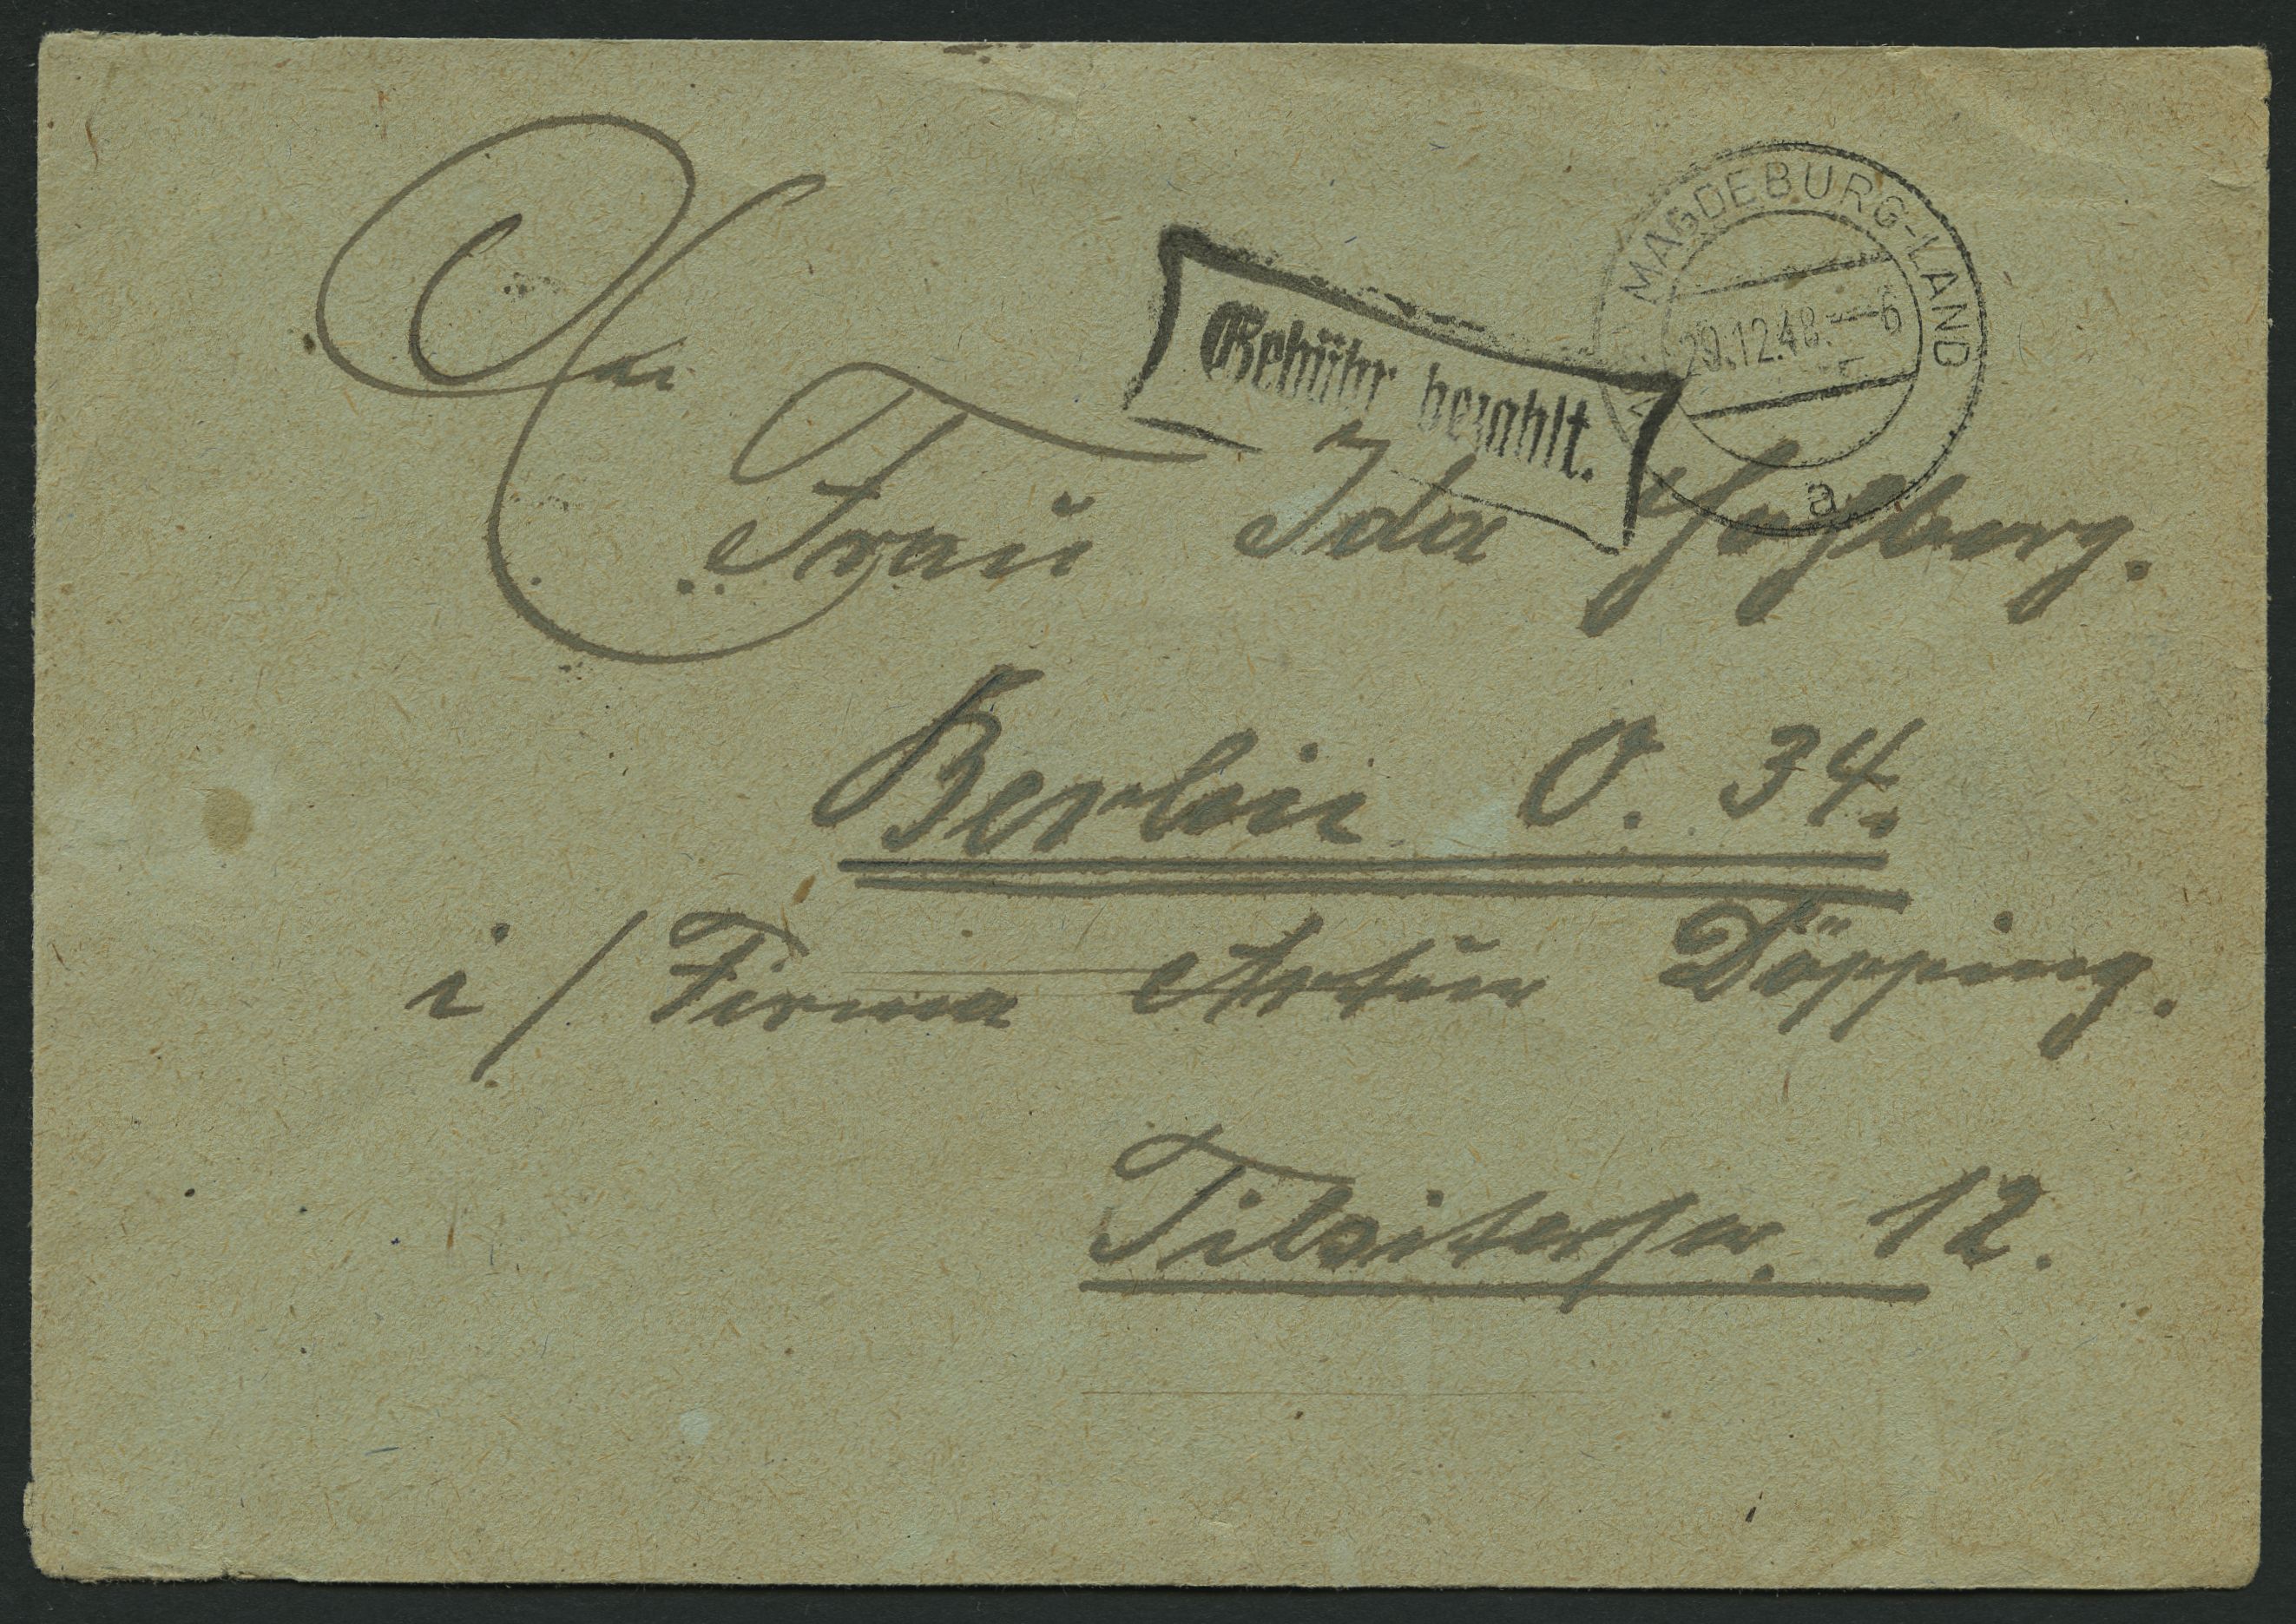 MAGDEBURG-LAND
29.12.48.-6
a
Gebühr bezahlt.
An
Frau Ida
Berlin O. 34.
i/ Firma Artur Döpping.
Tilsiterstr. 12.